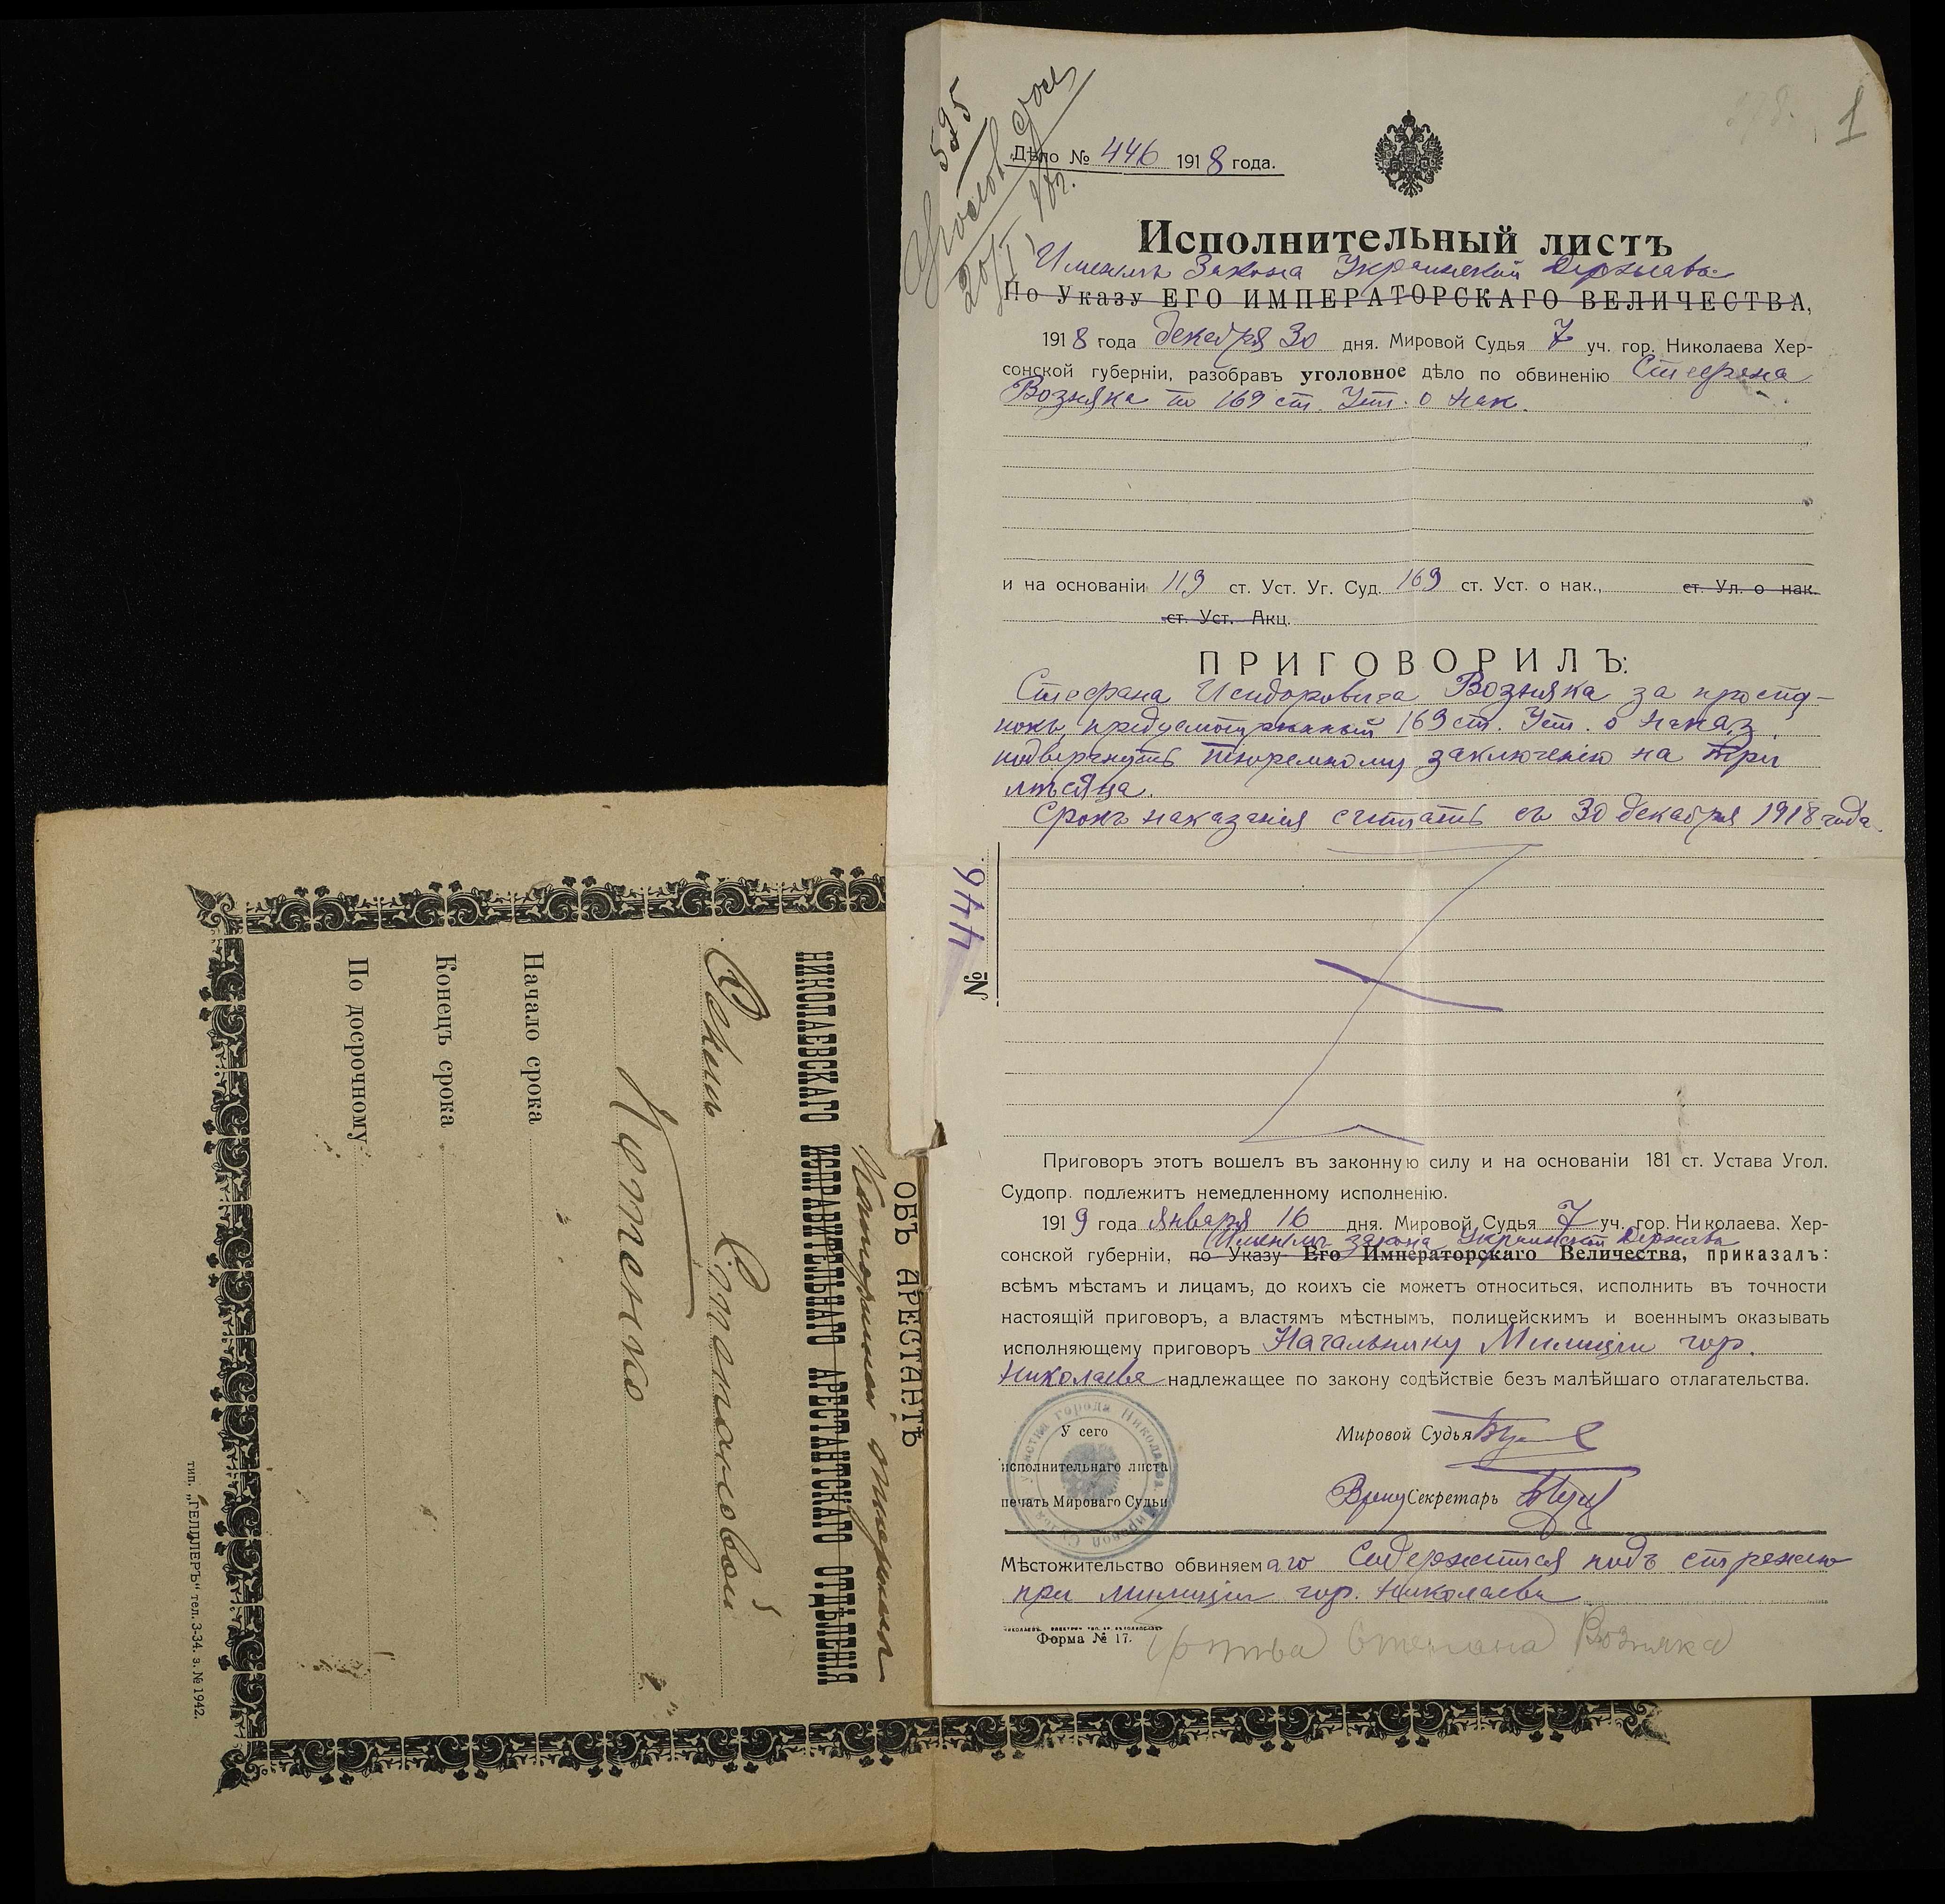 525
20/I
1
Дѣло № 446 1918 года.
Исполнительный листъ
Именемъ Закона Украинской Державы
По Указу ЕГО ИМПЕРАТОРСКАГО ВЕЛИЧЕСТВА,
1918 года декабря 30 дня. Мировой Судья 7 уч. гор. Николаева Хер-
сонской губерніи, разобравъ уголовное дѣло по обвиненію Стефана
Возняка по 169 ст. Уст. о нак.
и на основаніи 119 ст. Уст. Уг. Суд. 169 ст. Уст. о нак., ст. Ул. о нак.
ст. Уст. Акц.
ПРИГОВОРИЛЪ:
Стефана Исидоровича Возняка за просту-
покъ, предусмотрѣнный 169 ст. Уст. о наказ.
подвергнуть тюремному заключенію на три
мѣсяца.
Срокъ наказанія считать съ 30 декабря 1918 года.
№ 446
Приговоръ этотъ вошелъ въ законную силу и на основаніи 181 ст. Устава Угол.
Судопр. подлежитъ немедленному исполненію.
1919 года января 16 дня. Мировой Судья 7 уч. гор. Николаева, Хер-
Именемъ закона Украинской Державы
сонской губерніи, по Указу Его Императорскаго Величества, приказалъ:
всѣмъ мѣстамъ и лицамъ, до коихъ сіе можетъ относиться, исполнить въ точности
настоящій приговоръ, а властямъ мѣстнымъ, полицейскимъ и военнымъ оказывать
исполняющему приговоръ Начальнику Милиціи гор.
Николаева надлежащее по закону содѣйствіе безъ малѣйшаго отлагательства.
У сего
исполнительнаго листа
печать Мироваго Судьи
Мировой Судья
Секретарь
Мѣстожительство обвиняемаго Содержится подъ стражею
при милиціи гор. Николаева
Форма № 17.
Степана Возняка
ОБЪ АРЕСТАНТѢ
НИКОЛАЕВСКАГО ИСПРАВИТЕЛЬНАГО АРЕСТАНТСКАГО ОТДѢЛЕНІЯ
Степановой
Начало срока
Конецъ срока
По досрочному
тип. „ГЕЛЛЕРЪ“ тел. 3-34. з. № 1942.